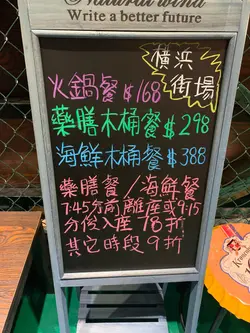 Natural wind
Write a better future
橫浜
街場
火鍋餐 $168
藥膳木桶餐 $298
海鮮木桶餐 $388
藥膳餐/海鮮餐
7:45分前離座或9:15
分後入座 78折
其它時段9折